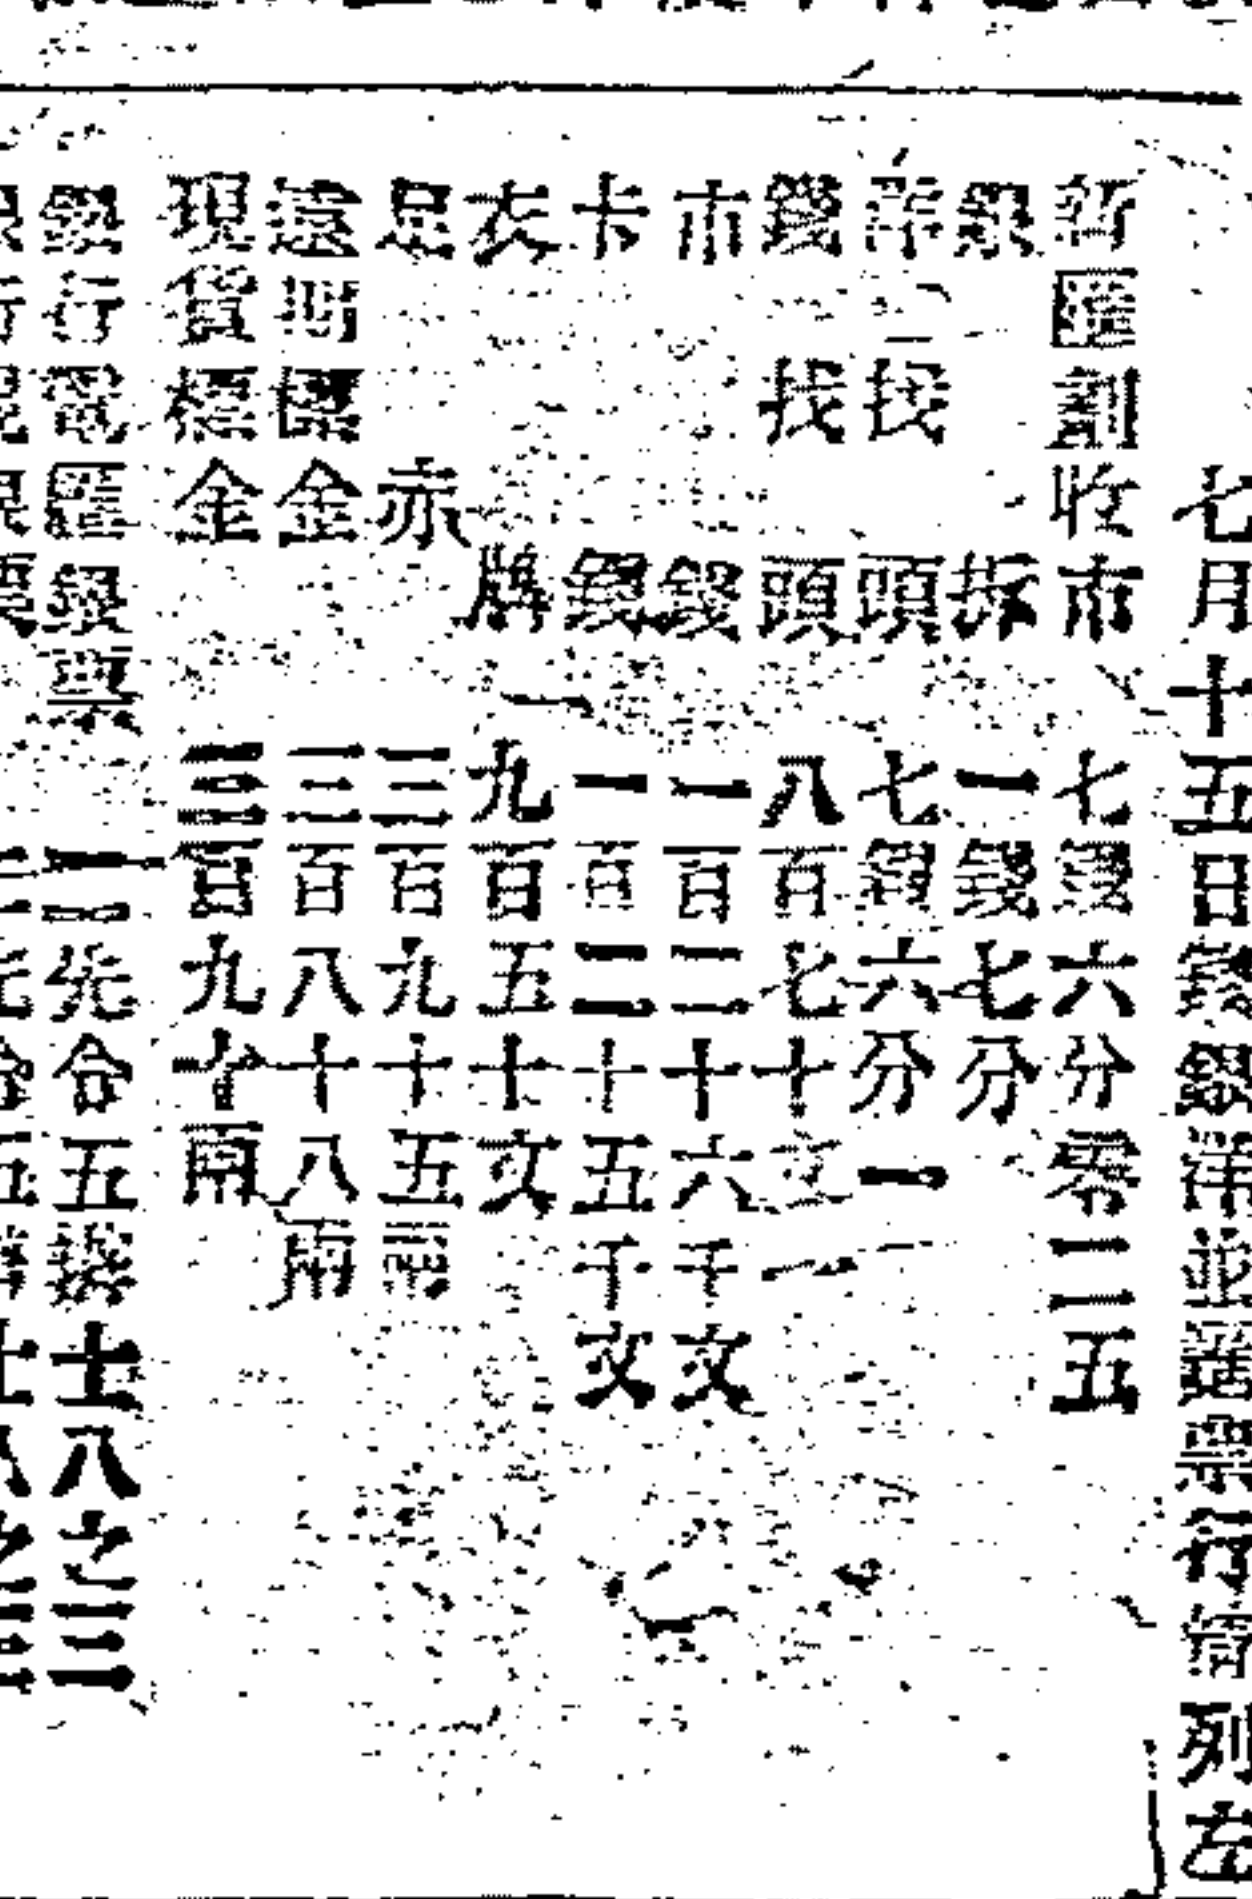 七月十五日錢銀洋並匯票行情列左
匯劃收市七錢六分零二五
銀拆一錢七分
洋找頭七錢六分一
錢找頭八百七十文
市錢一百二十六千文
卡錢一百二十五千文
衣牌九百五十文
足赤三百九十五兩
遠期標金三百八十八兩
現貨標金三百九十兩
銀行電匯銀票二先令五辨士八之三